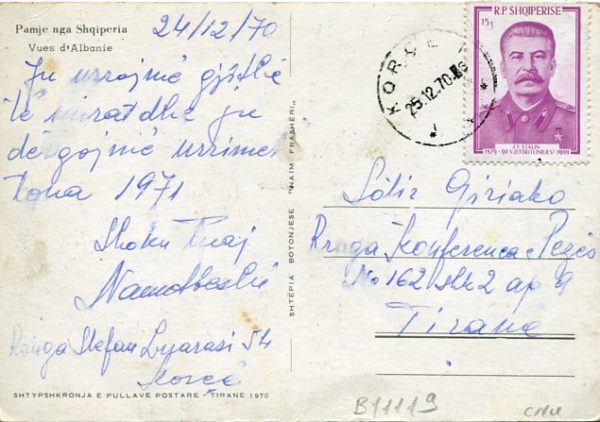 Pamje nga Shqiperia
Vues d'Albanie
24/12/70
Ju urrojmë gjithë
të mirat dhe ju
dërgojmë urrimet
tona 1971
Shoku tuaj
Rruga Stefan Luarasi 54
Korçë
SHTYPSHKRONJA E PULLAVE POSTARE - TIRANE 1970
SHTËPIA BOTONJESE "NAIM FRASHËRI"
KORÇE
25.12.70
R.P. SHQIPERISE
15q
J.V. STALIN
1879 - 90 VJETORI I LINDJES - 1969
Sotir Giriako
Rruga Konferenca e Pezës
No 162 shk 2 ap 9
Tirane
B11119